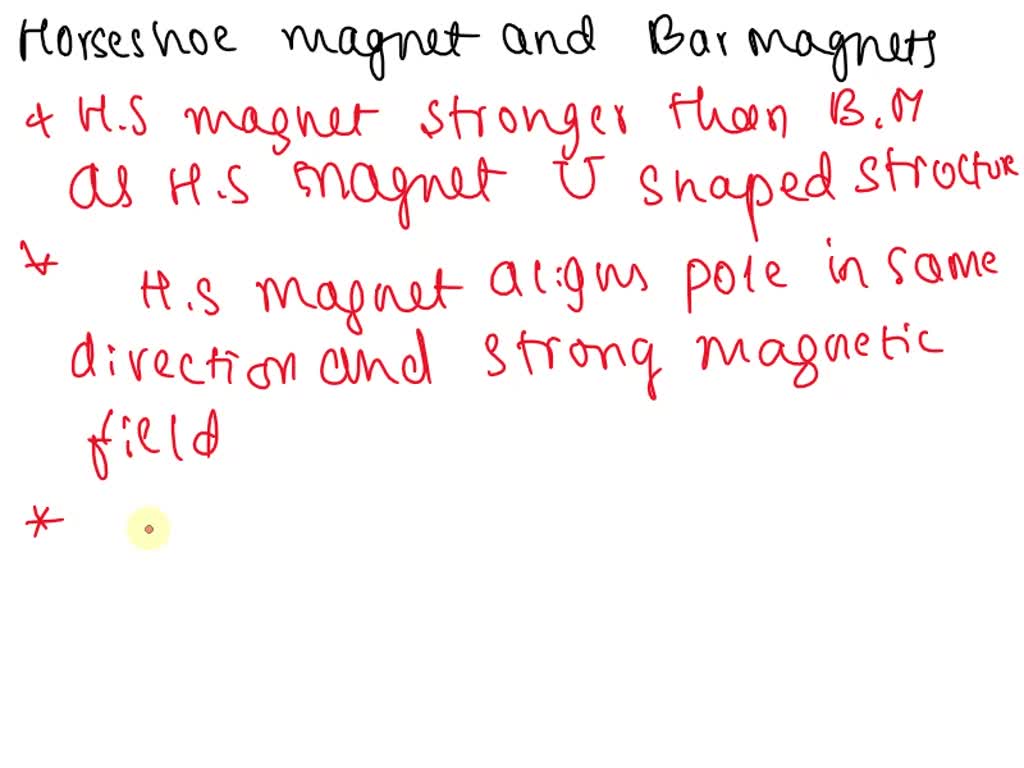 Horseshoe magnet and Bar magnets
* H.S magnet stronger than B.M
as H.S magnet U shaped structure
*
H.S magnet aligns pole in same
direction and strong magnetic
field
*